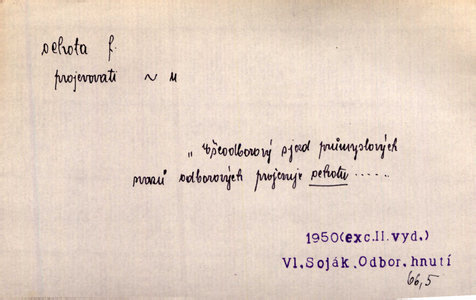 ochota f.
projevovati ~ u
„Všeodborový sjezd průmyslových
svazů odborových projevuje ochotu.....
1950(exc.II.vyd.)
Vl.Soják,Odbor.hnutí
66,5